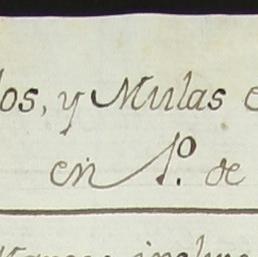 los, y Mulas e
en 1º. de